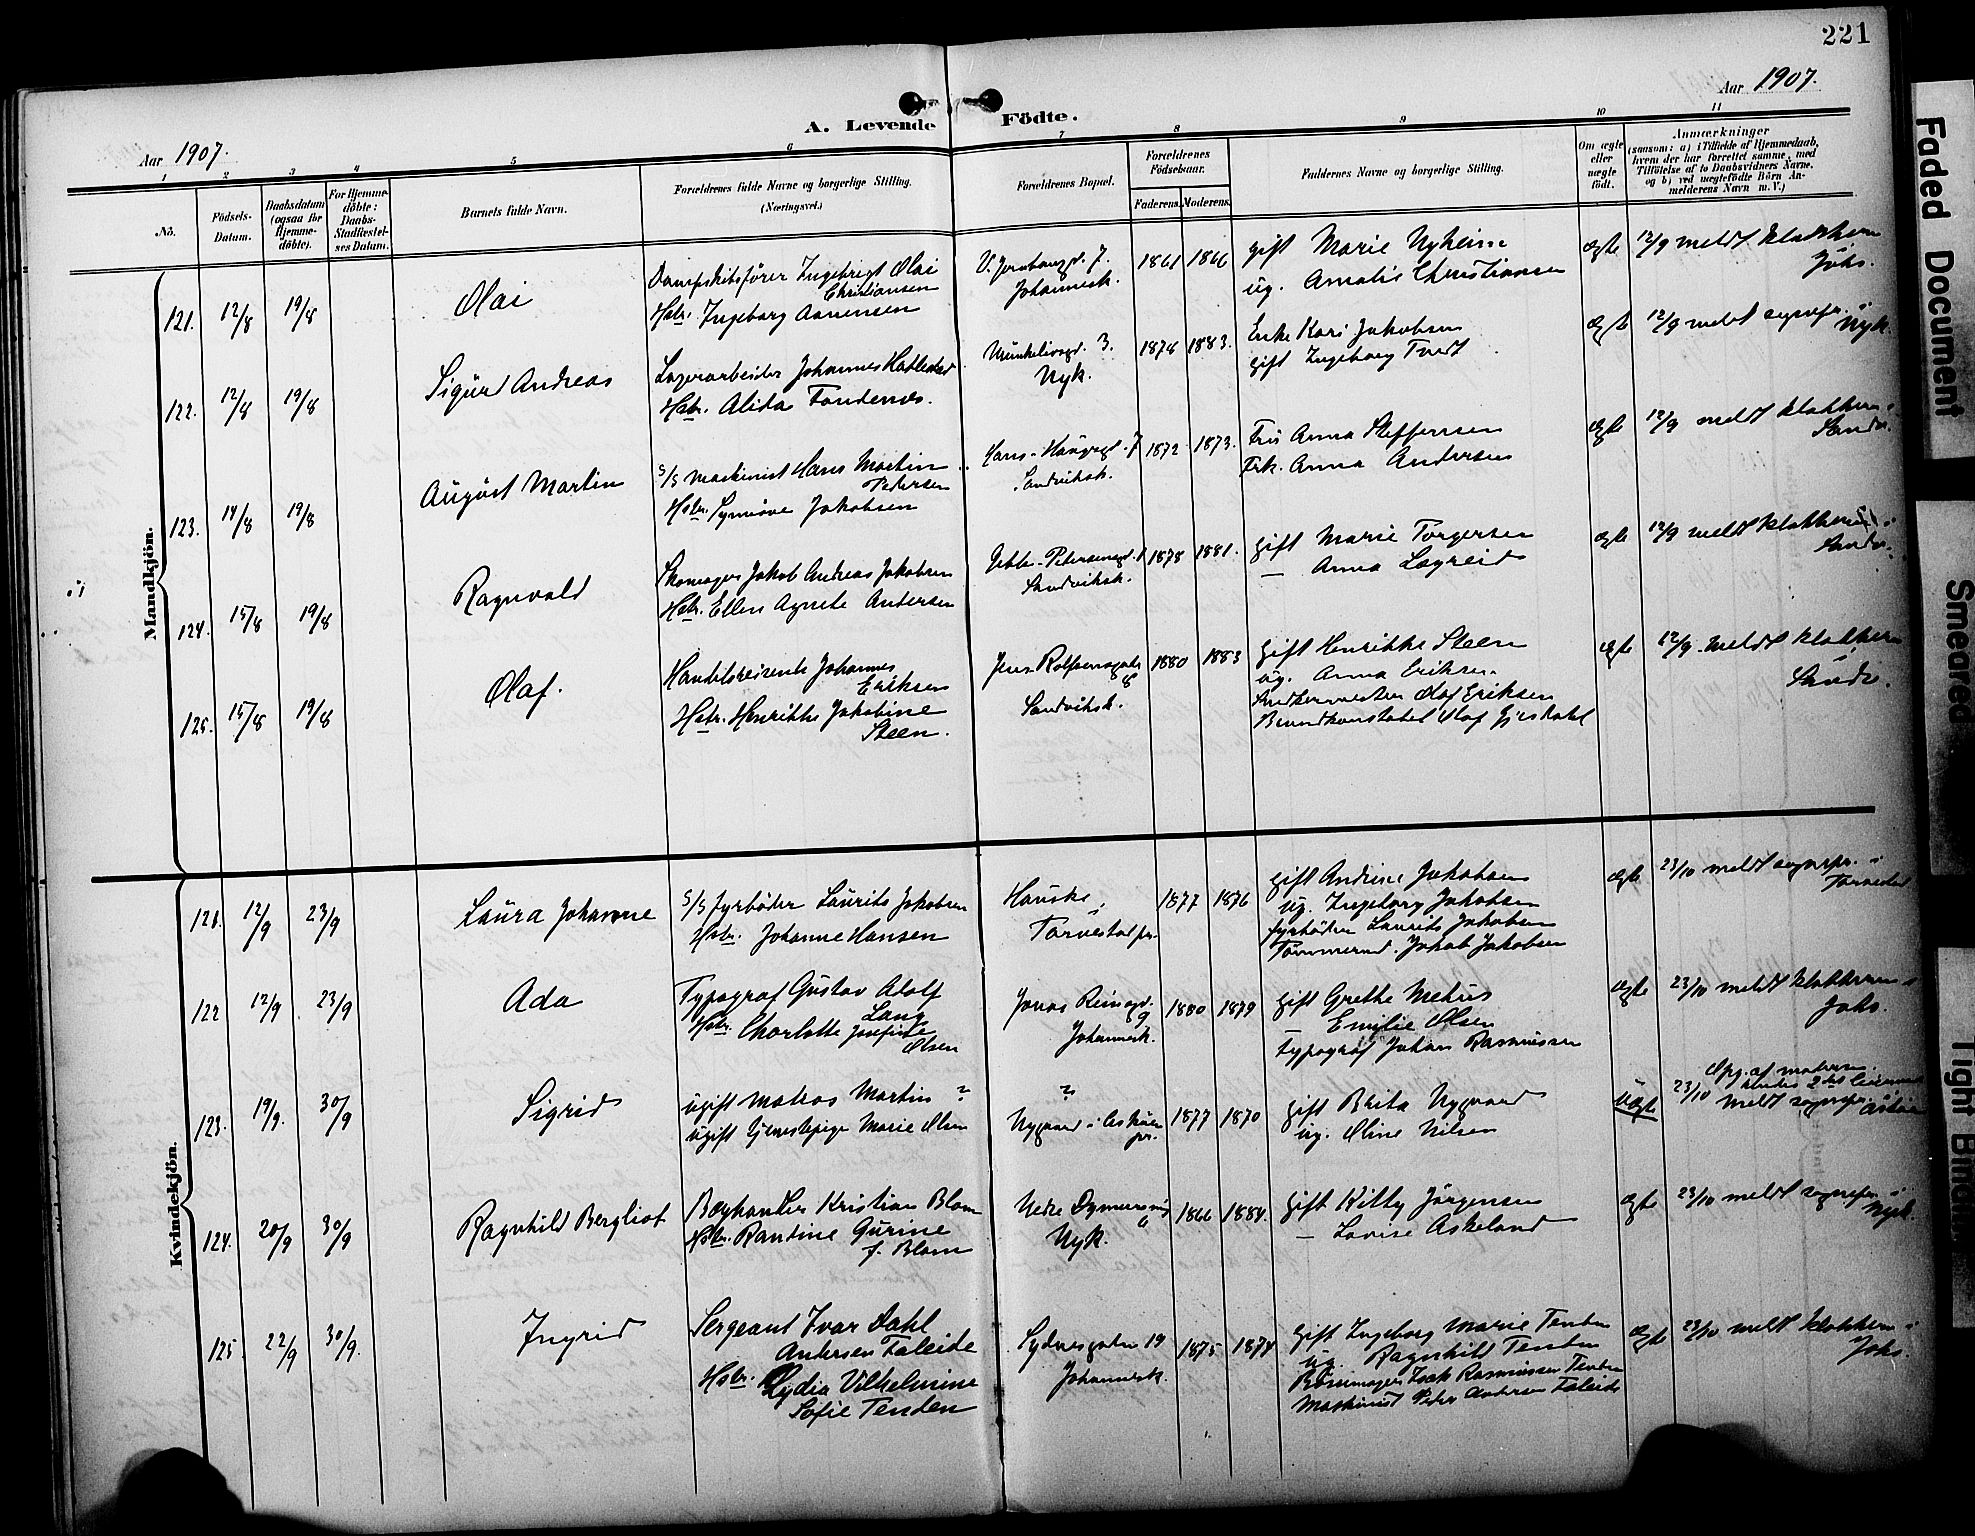 221
Aar 1907.
Aar 1907.
A. Levende Födte.
1 2 3 4 5 6 7 8 9 10 11
No.
Födsels-Datum.
Daabsdatum (ogsaa for Hjemme-döbte).
For Hjemme-döbte: Daabs-Stadfæstel-ses Datum.
Barnets fulde Navn.
Forældrenes fulde Navne og borgerlige Stilling.
(Næringsvei.)
Forældrenes Bopæl.
Forældrenes Födselsaar.
Faderens. Moderens.
Faddernes Navne og borgerlige Stilling.
Om ægte eller uægte født.
Anmærkninger
(saasom: a) i Tilfælde af Hjemmedaab, hvem der har forrettet samme, med Tilföielse af to Daabsvidners Navne, og b) ved uægtefödte Börn An-melderens Navn m. V.)
Mandkjön.
121. 12/8 19/8 Olai
Dampskibsfører Ingebrigt Olai
Christiansen
Hstr. Ingeborg Aanensen
Johannesk.
1861 1866
gift Marie Nyheim
ug. Amalie Christiansen
ægte
12/9 meldt klokkeren
Johs.
122. 12/8 19/8 Sigurd Andreas
Lagerarbeider Johannes Hatlestad
Hstr. Alida Fondenes.
3.
Nyk.
1878 1883.
Enke Kari Jakobsen
gift Ingeborg Tvedt
ægte
12/9 meldt sognepr. i
Nyk.
123. 14/8 19/8 August Martin
S/S maskinist Hans Martin
Pedersen
Hstr. Synnöve Jakobsen
Hans-Haugesgd. 7
Sandviksk.
1872 1873.
Fru Anna Steffensen
Frk. Anna Andersen
ægte
12/9 meldt klokkeren i
Sandv.
124. 15/8 19/8 Ragnvald
Skomager Jakob Andreas Jakobsen
Hstr. Ellen Agnete Andersen
Gjeble-Pedersensgd. 1
Sandviksk.
1878 1881.
gift Marie Torgersen
— Anna Løgreid
ægte
12/9 meldt klokkeren i
Sandv.
125. 15/8 19/8 Olaf.
Handelsreisende Johannes
Eriksen
Hstr. Henrikke Jakobine
Steen.
Jens Rolfsensgade
8
Sandviksk.
1880 1883
gift Henrikke Steen
ug. Anna Eriksen.
Snedkermester Olaf Eriksen
Brandkonstabel Olaf Gjesdahl
ægte
12/9 meldt klokkeren
Sandv.
Kvindekjön.
121. 12/9 23/9 Laura Johanne
S/S fyrbøder Laurits Jakobsen
Hstr. Johanne Hansen
Hauske,
Torvestad pr.
1877 1876
gift Andrine Jakobsen
ug. Ingeborg Jakobsen
fyrbøder Laurits Jakobsen
Tømmermd. Jakob Jakobsen
ægte
23/10 meldt sognepr. i
Torvestad
122 12/9 23/9 Ada
Typograf Gustav Adolf
Lang
Hstr. Charlotte Josefine
Olsen
Jonas Reinsgd.
9
Johannesk.
1880 1879
gift Grethe Mehus
Emilie Olsen
typograf Johan Rasmussen
ægte
23/10 meldt klokkeren i
Johs.
123. 19/9. 30/9 Sigrid
ugift matros Martin ?
ugift tjenestepige Marie Olsen
?
Nygaard i Askøen
pr.
1877 1870
gift Brita Nygaard
ug. Oline Nilsen
uægte
Opg. af moderen.
23/10 meldt sognepr. Askøen
124. 20/9 30/9 Ragnhild Bergliot
Bøghandler Kristian Blom
Hstr. Rantine Gurine
f. Blom
Nedre Dymersvei
6
Nyk.
1866 1884.
gift Kitty Jörgensen
— Lovise Askeland
ægte
23/10 meldt sognepr. i
Nyk.
125. 22/9 30/9. Ingrid
Sergeant Ivar Dahl
Andersen Faleide
Hstr. Lydia Vilhelmine
Sofie Tenden
Sydnesgaten 19
Johannesk.
1875 1874
gift Ingeborg Marie Tenden
ug. Ragnhild Tenden
Bøssemager Isak Rasmussen Tenden
Maskinist Peder Andersen Faleide
ægte
23/10 meldt klokkeren i
Johs.
Faded Document
Smeared
Tight Binding